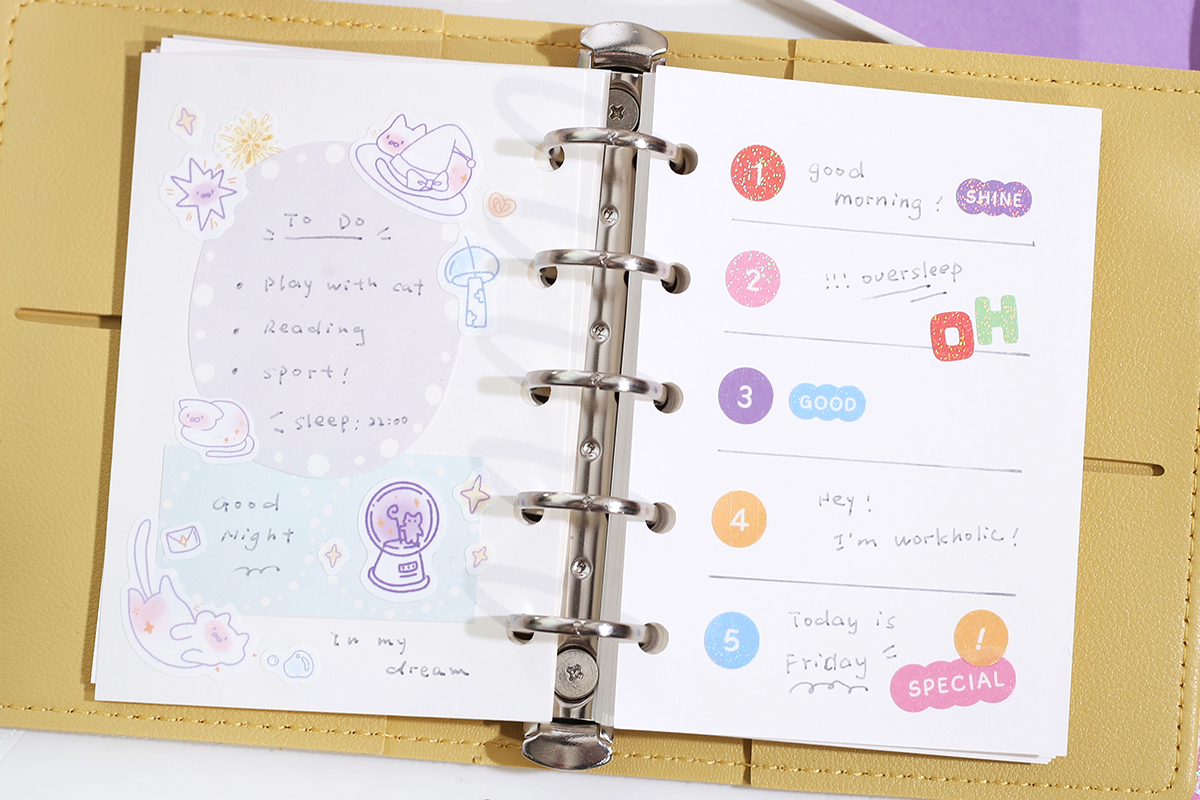 To Do
• Play with cat
• Reading
• sport!
sleep: 22:00
Good
Night
In my
dream
1 good
morning! SHINE
2 !!! oversleep
OH
3 GOOD
4 Hey!
I'm workholic!
5 Today is
Friday !
SPECIAL